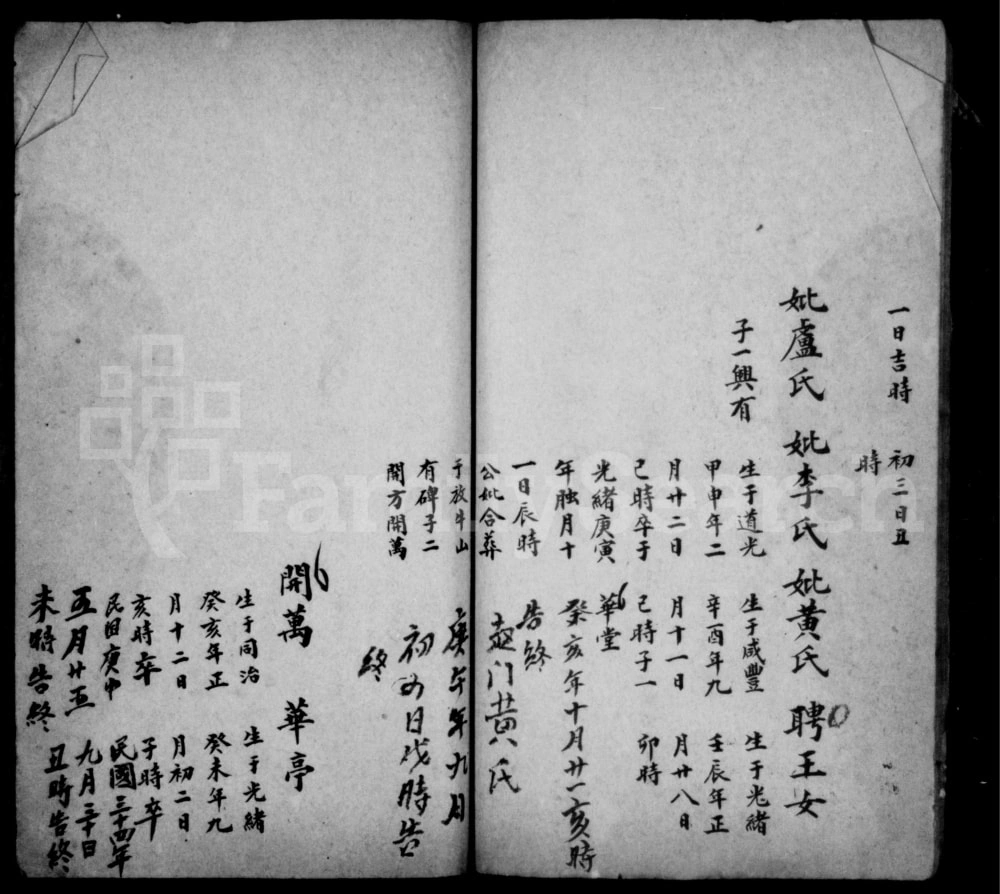 一日吉時
初三日丑
時
妣盧氏 妣李氏 妣黃氏 聘王女
子一興有
生于道光
甲申年二
月廿二日
己時卒于
光緒庚寅
年脏月十
一日辰時
公妣合葬
于放牛山
有碑子二
開方開萬
生于咸豐
辛酉年九
月十一日
己時子一
華堂
癸亥年十月廿一亥時
告終
趙门黃氏
庚午年九月
初四日戌時告
終
生于光緒
壬辰年正
月廿八日
卯時
開萬 華亭
生于同治
癸亥年正
月十二日
亥時卒
民国庚申
五月廿五
未時告終
生于光緒
癸未年九
月初二日
子時卒
民國三十四年
九月三十日
丑時告終
FamilySearch